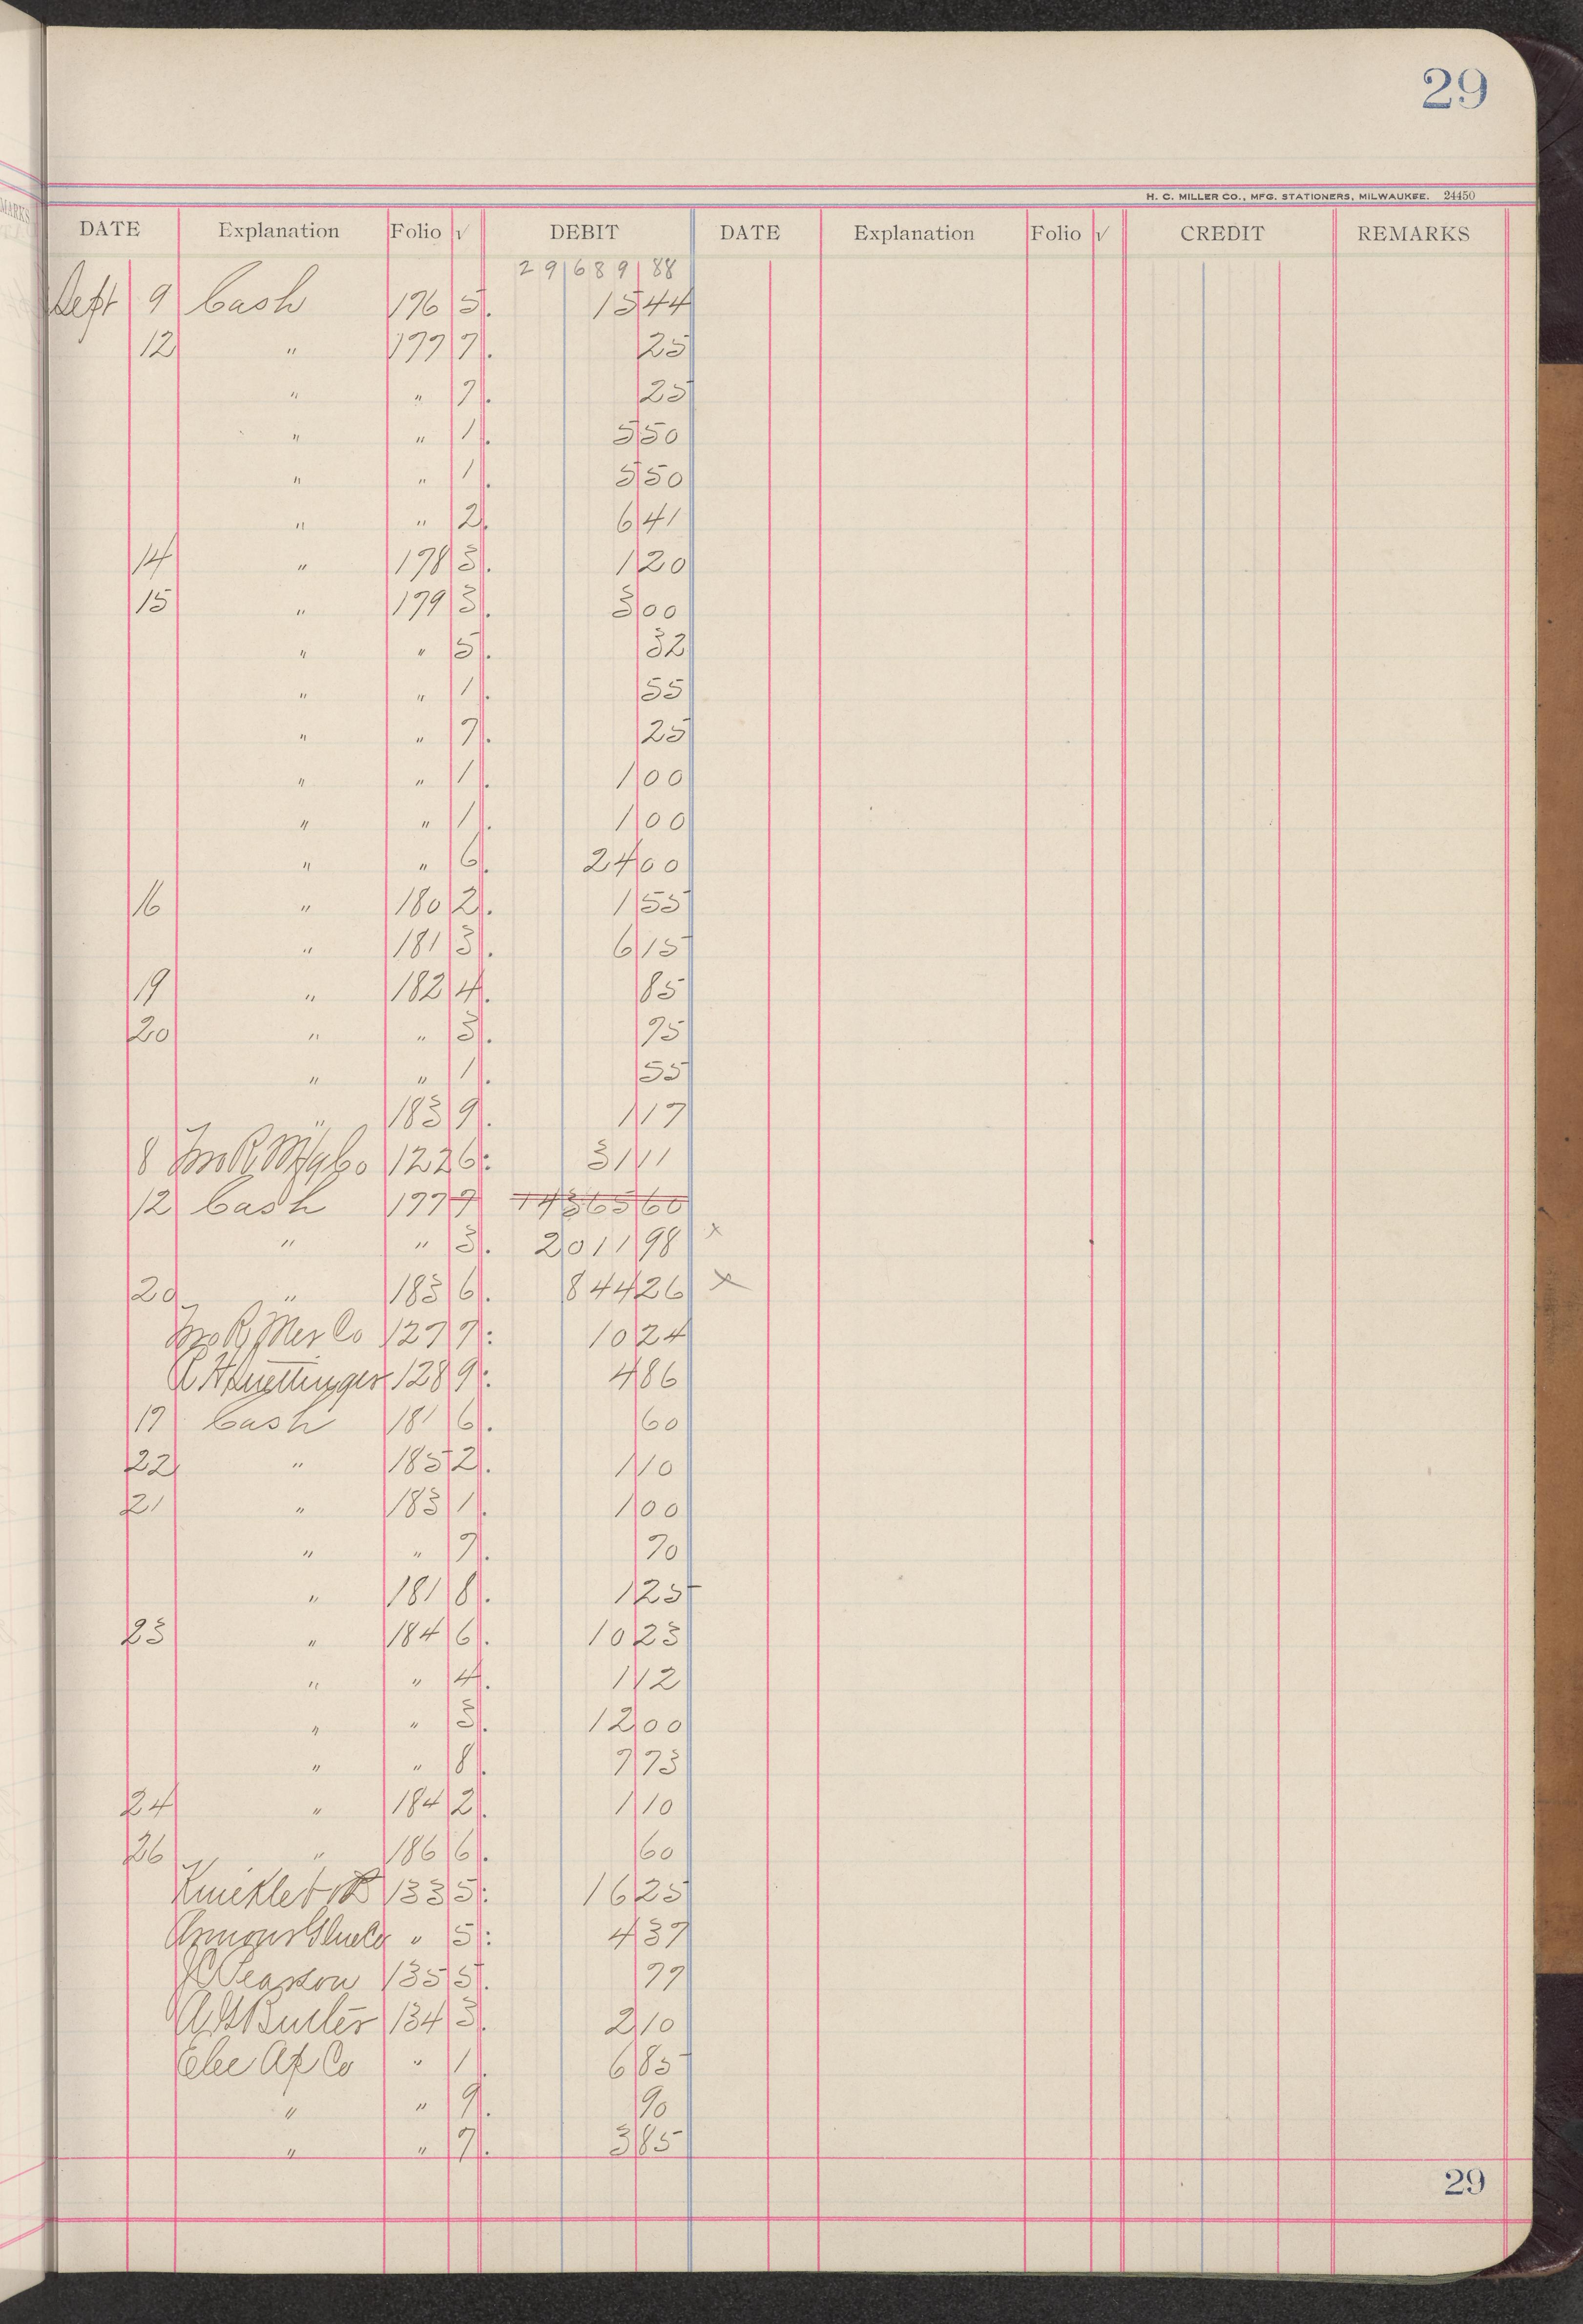 29
H. C. MILLER CO., MFG. STATIONERS, MILWAUKEE. 24450
DATE Explanation Folio √ DEBIT DATE Explanation Folio √ CREDIT REMARKS
29689 88
Sept 9 Cash 176 5. 15 44
12 " 177 7. 25
" " 7. 25
" " 1. 5 50
" " 1. 5 50
" " 2. 6 41
14 " 178 3. 1 20
15 " 179 3. 3 00
" " 5. 32
" " 1. 55
" " 7. 25
" " 1. 1 00
" " 1. 1 00
" " 6. 24 00
16 " 180 2. 1 55
" 181 3. 6 15
19 " 182 4. 85
20 " " 3. 75
" " 1. 55
" 183 9. 1 17
8 Jno R 122 6: 31 11
12 Cash 177 7 14365 60
" " 3. 2011 98 x
20 " 183 6. 844 26 x
Jno R Mer Co 127 7: 10 24
128 9: 4 86
17 Cash 181 6. 60
22 " 185 2. 1 10
21 " 183 1. 1 00
" " 7. 70
" 181 8. 1 25
23 " 184 6. 10 23
" " 4. 1 12
" " 3. 12 00
" " 8. 7 73
24 " 184 2. 1 10
26 " 186 6. 60
133 5: 16 25
Armour Glue Co " 5: 4 37
J C Pearson 135 5. 77
A H Butler 134 3. 2 10
Elec Ap Co " 1. 6 85
" " 9. 90
" " 7. 3 85
29